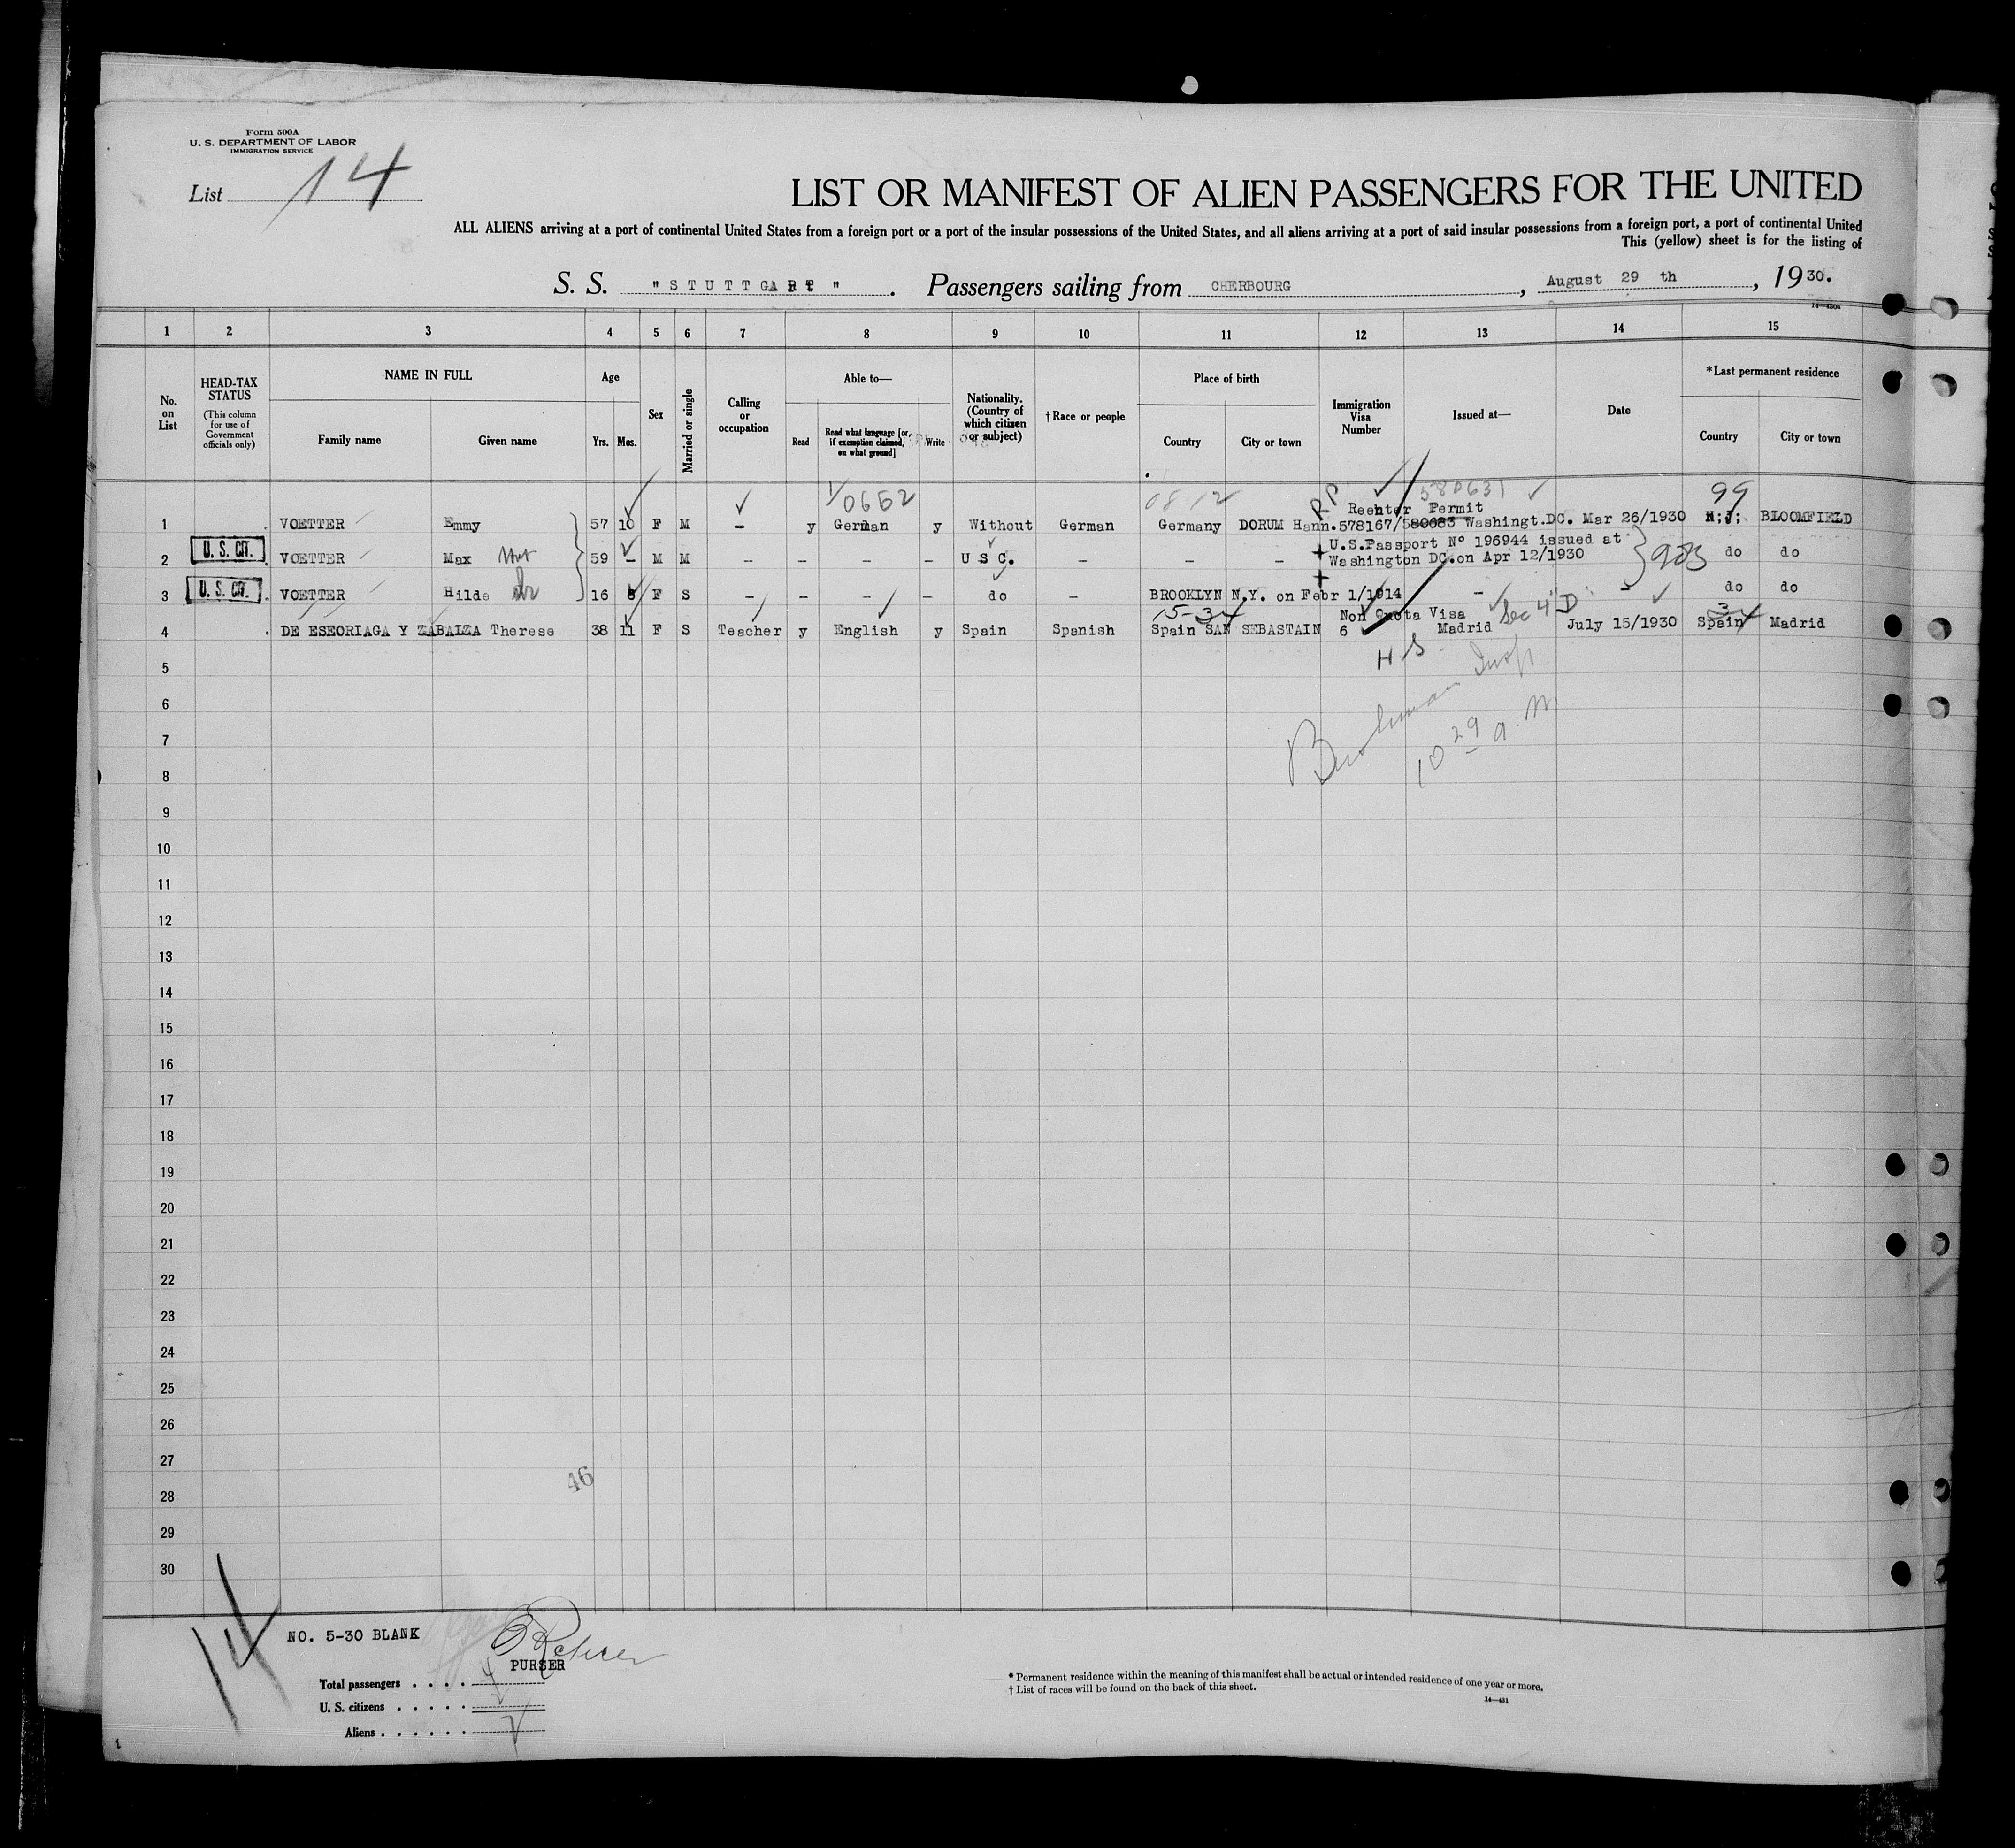 Form 500A
U. S. DEPARTMENT OF LABOR
IMMIGRATION SERVICE
List 14
LIST OR MANIFEST OF ALIEN PASSENGERS FOR THE UNITED
ALL ALIENS arriving at a port of continental United States from a foreign port or a port of the insular possessions of the United States, and all aliens arriving at a port of said insular possessions from a foreign port, a port of continental United
This (yellow) sheet is for the listing of
S. S. "STUTTGART". Passengers sailing from CHERBOURG, August 29 th, 1930.
1 2 3 4 5 6 7 8 9 10 11 12 13 14 15
No. on List
HEAD-TAX STATUS
(This column for use of Government officials only)
NAME IN FULL
Family name Given name
Age
Yrs. Mos.
Sex
Married or single
Calling or occupation
Able to—
Read
Read what language [or, if exemption claimed, on what ground]
Write
Nationality. (Country of which citizen or subject)
† Race or people
Place of birth
Country City or town
Immigration Visa Number
Issued at—
Date
*Last permanent residence
Country City or town
0662 0812 580631 99
Reenter Permit
1 VOETTER Emmy 57 10 F M — y German y Without German Germany DORUM Hann. 578167/580683 Washingt.DC. Mar 26/1930 N.J. BLOOMFIELD
U.S.Passport Nº 196944 issued at
2 U. S. CIT. VOETTER Max 59 — M M — — — — U S C. — — — Washington DC. on Apr 12/1930 903 do do
3 U. S. CIT. VOETTER Hilde 16 6 F S — — — — do — BROOKLYN N.Y. on Febr 1/1914 — — do do
5-34 Non Quota Visa Sec 4 "D"
4 DE ESEORIAGA Y ZABALZA Therese 38 11 F S Teacher y English y Spain Spanish Spain SAN SEBASTAIN 6 Madrid July 15/1930 Spain Madrid
H S
5
6
7
10 29 a.m
8
9
10
11
12
13
14
15
16
17
18
19
20
21
22
23
24
25
26
27
46
28
29
30
14
NO. 5-30 BLANK
PURSER
Total passengers . . . . 4
U. S. citizens . . . . .
Aliens . . . . . .
* Permanent residence within the meaning of this manifest shall be actual or intended residence of one year or more.
† List of races will be found on the back of this sheet.
14—431